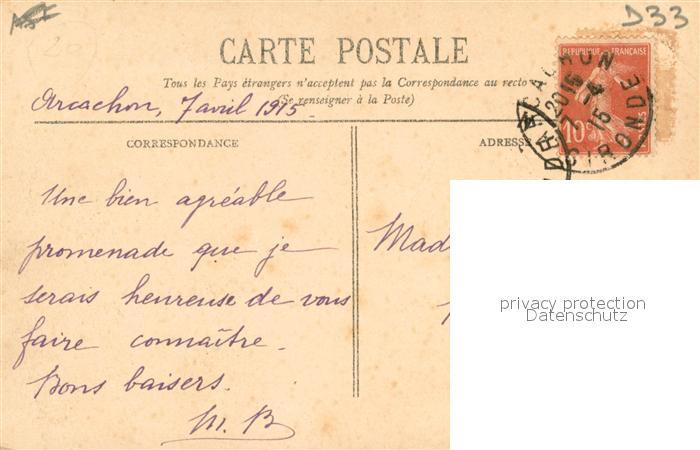 D33
CARTE POSTALE
Tous les Pays étrangers n'acceptent pas la Correspondance au recto
(Se renseigner à la Poste)
Arcachon, 7 avril 1915
CORRESPONDANCE
ADRESSE
REPUBLIQUE FRANÇAISE
10c
POSTES
ARCACHON
20 15
7 - 4
15
GIRONDE
Une bien agréable
promenade que je
serais heureuse de vous
faire connaître.
Bons baisers.
M. B
Mad
privacy protection
Datenschutz